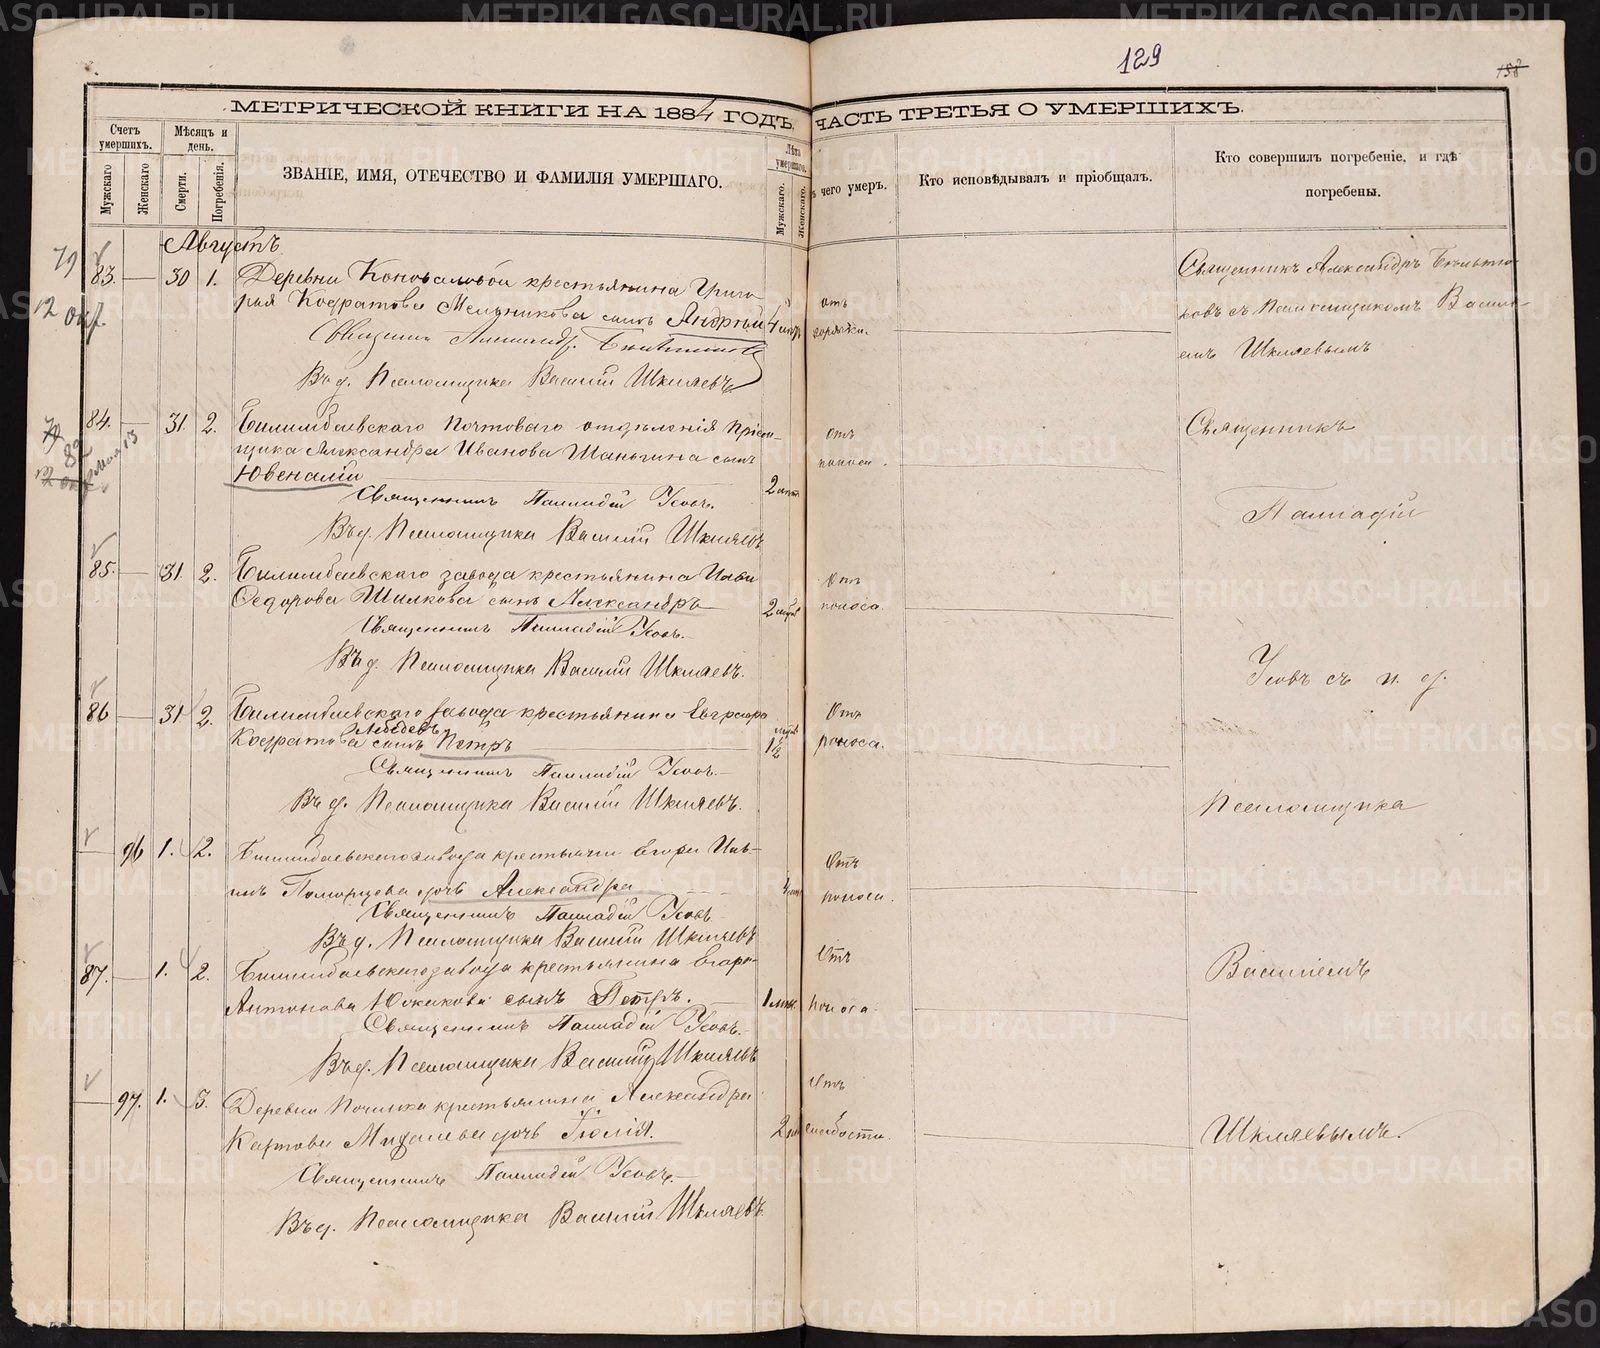 129
158
МЕТРИЧЕСКОЙ КНИГИ НА 1884 ГОДЪ, ЧАСТЬ ТРЕТЬЯ О УМЕРШИХЪ.
Счетъ умершихъ.
Мужскаго
Женскаго
Мѣсяцъ и день.
Смерти.
Погребенія.
ЗВАНІЕ, ИМЯ, ОТЕЧЕСТВО И ФАМИЛІЯ УМЕРШАГО.
Лѣта умершаго.
Мужскаго.
Женскаго.
чего умеръ.
Кто исповѣдывалъ и пріобщалъ.
Кто совершилъ погребеніе, и гдѣ погребены.
Августъ
83. — 30 1. Деревни Коноваловой крестьянина Григо-
рья Кодратова Мельникова сынъ Андрей
отъ
Священникъ Александр.
В. д. Псаломщика Василій Шкляевъ
Священникъ Александръ
ковъ съ Псаломщикомъ Василі-
емъ Шкляевымъ
84. — 31. 2. Билимбаевскаго Почтоваго отдѣленія Пріем-
щика Александра Иванова Шаньгина сынъ
Ювеналій
2
отъ
поноса.
Священникъ Палладій Усовъ.
Въ д. Псаломщика Василій Шкляевъ
85. — 31. 2. Билимбаевскаго завода крестьянина Ильи
Ѳедорова Шилкова сынъ Александръ
2
Отъ
поноса.
Священникъ Палладій Усовъ.
Въ д. Псаломщика Василій Шкляевъ.
86 — 31 2. Билимбаевскаго завода крестьянина Евграфа
Лебедевъ
Кодратова сынъ Петръ
1½
Отъ
поноса.
Священникъ Палладій Усовъ.
Въ д. Псаломщика Василій Шкляевъ.
— 96 1. 2. Билимбаевскаго завода крестьянин Егора
Поморцева дочь Александра
4
Отъ
поноса.
Священникъ Палладій Усовъ
Въ д. Псаломщика Василій Шкляевъ
87. — 1. 2. Билимбаевскаго завода крестьянина Егора
Антонова сынъ Петръ.
1
Отъ
поноса.
Священникъ Палладій Усовъ.
Въ д. Псаломщика Василій Шкляевъ
— 97. 1. 3. Деревни Починка крестьянина Александра
Карпова дочь Іюлія.
2
Отъ
слабости.
Священникъ Палладій Усовъ.
Въ д. Псаломщика Василій Шкляевъ.
Священникъ
Палладій
Усовъ съ и. д.
Псаломщика
Василіемъ
Шкляевымъ.
METRIKI.GASO-URAL.RU